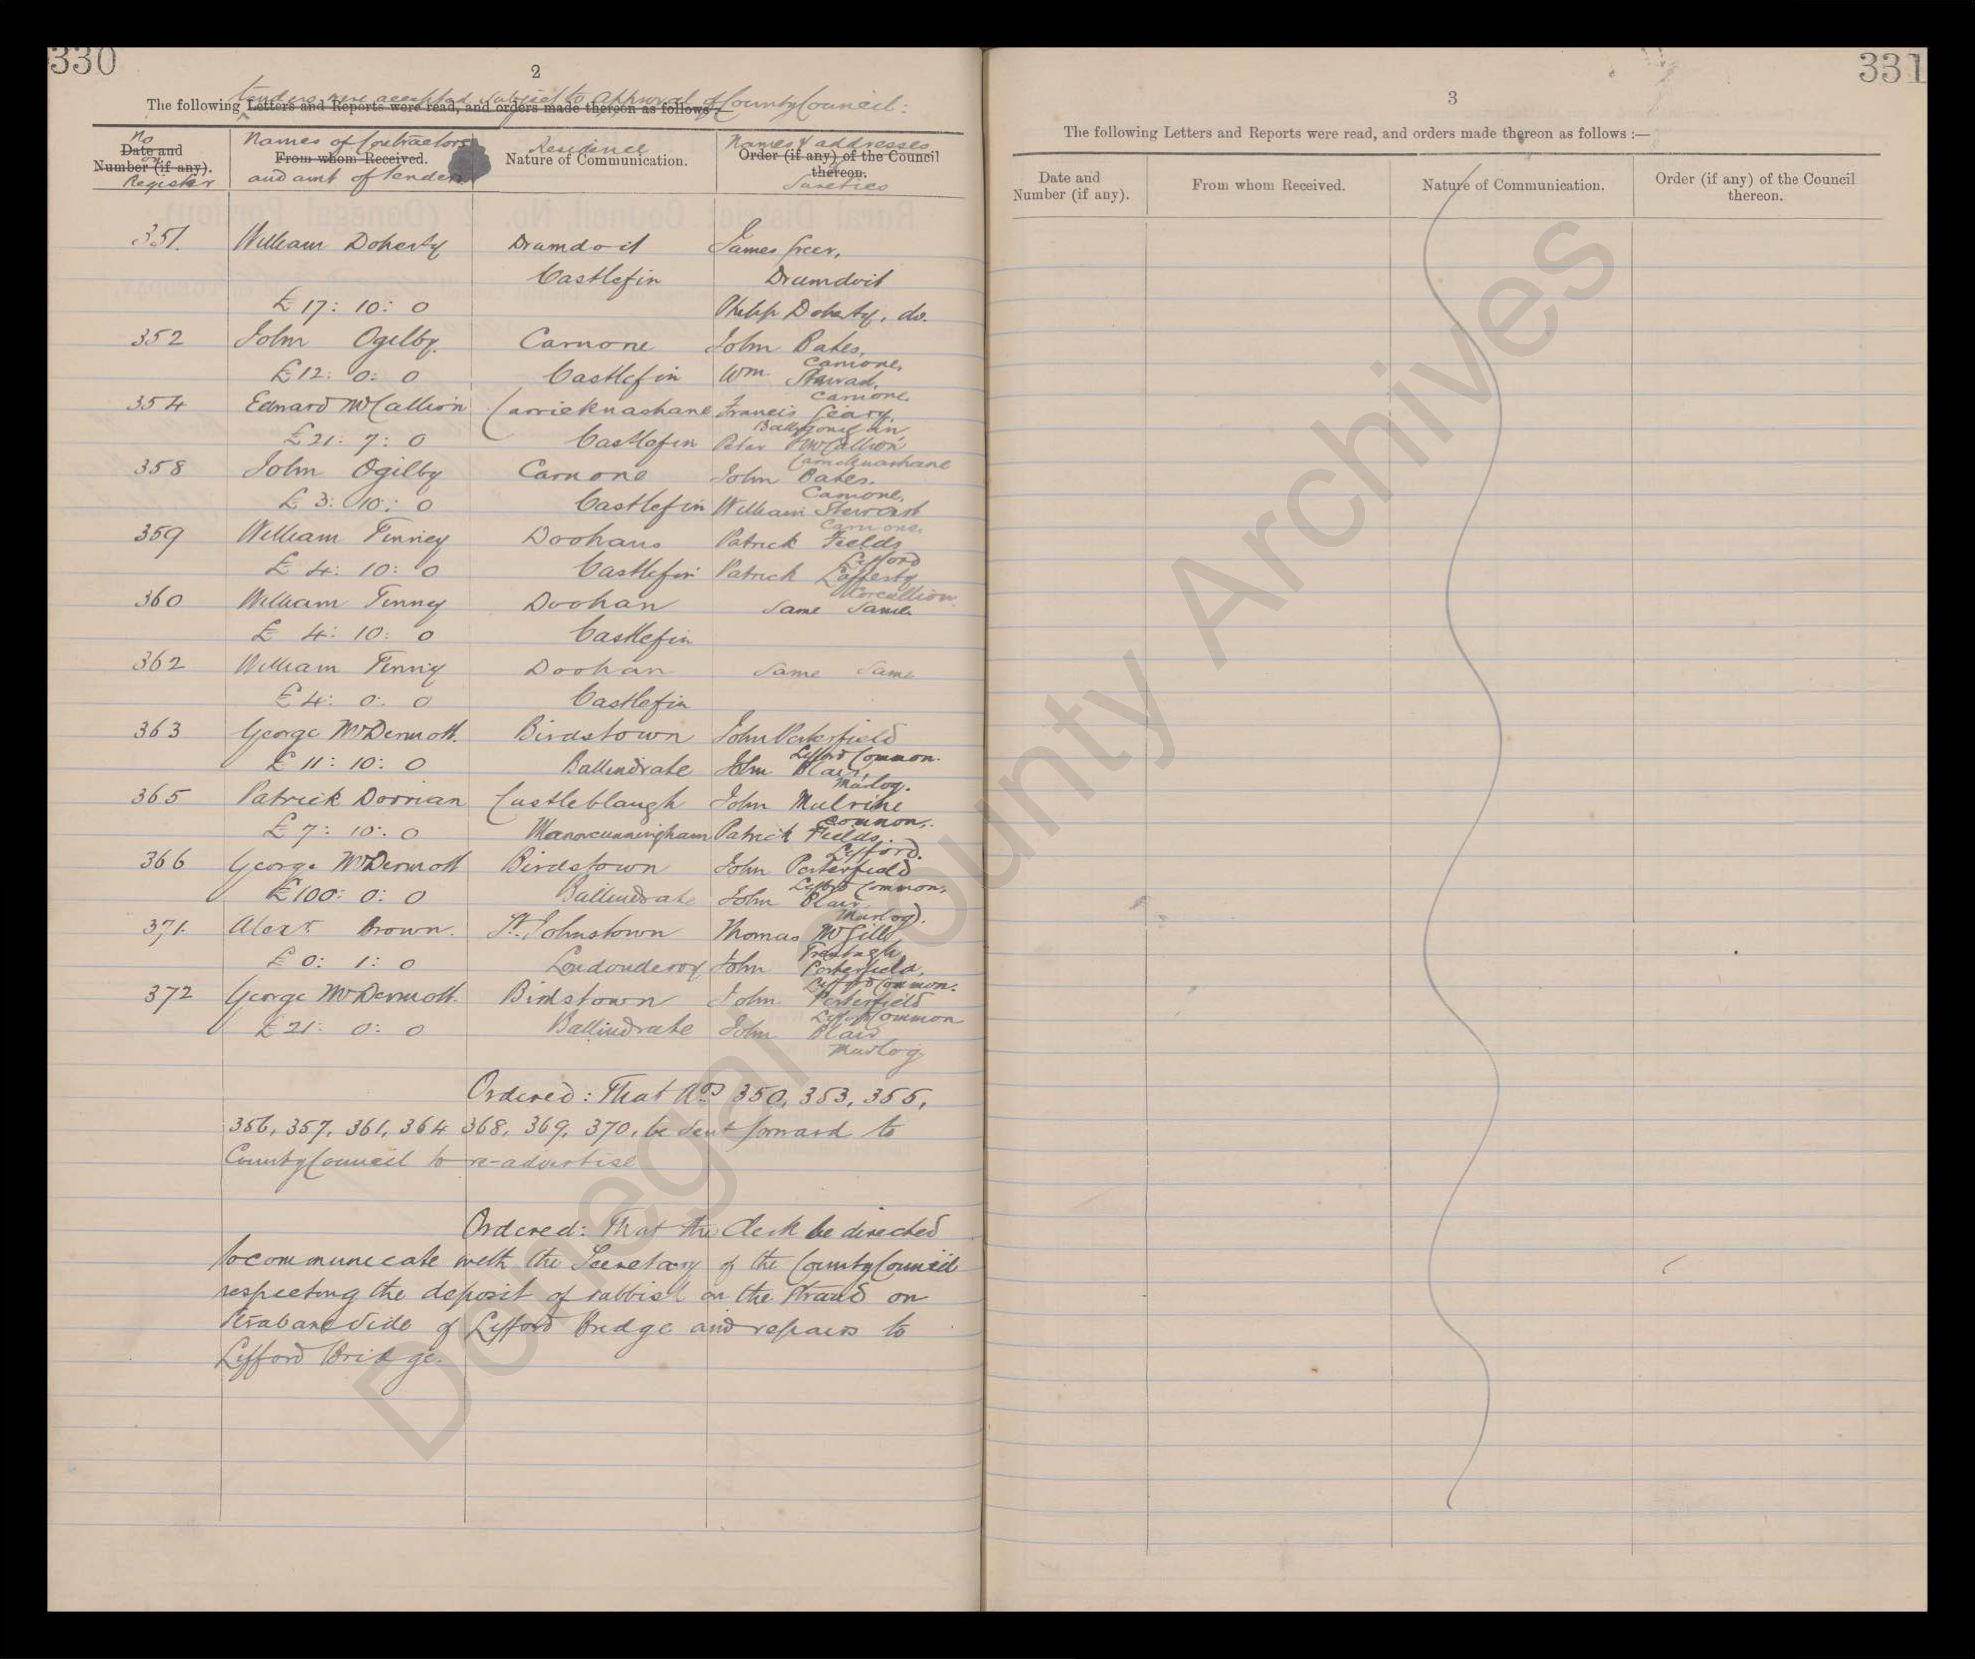 330
2
tenders were accepted subject to approval of County Council:
The following Letters and Reports were read, and orders made thereon as follows:—
No Names of Contractors Residence Names & addresses
Date and Number (if any). From whom Received. Nature of Communication. Order (if any) of the Council thereon.
Register and amt of tender Sureties
351. William Doherty Drumdoit James Greer,
Castlefin Drumdoit
£17: 10: 0 Philip Doherty, do.
352 John Ogilby. Carnone John Bates,
Carnone,
£12: 0: 0 Castlefin Wm. Steward,
Carnone,
354 Edward McCallion Carricknashane Francis Geary,
£21: 7: 0 Castlefin Peter McCallion
Carricknashane
358 John Ogilby Carnone John Bates,
Carnone,
£3: 10: 0 Castlefin William Stewart
Carnone,
359 William Finney Doohans Patrick Fields
Lifford
£4: 10: 0 Castlefin Patrick Lafferty
360 William Finney Doohan Same Same
£4: 10: 0 Castlefin
362 William Finney Doohan Same Same
£4: 0: 0 Castlefin
363 George McDermott. Birdstown John Porterfield
Lifford Common.
£11: 10: 0 Ballindrate John Blair,
Murlog.
365 Patrick Dorrian Castleblaugh John Mulrine
Common,
£7: 10: 0 Manorcunningham Patrick Fields
Lifford.
366 George McDermott Birdstown John Porterfield
Lifford Common,
£100: 0: 0 Ballindrate John Blair
Murlog.
371. Alexr. Brown. St. Johnstown Thomas McGill
£0: 1: 0 Londonderry John Porterfield,
Lifford Common.
372 George McDermott. Birdstown John Porterfield
Lifford Common
£21: 0: 0 Ballindrate John Blair
Murlog
Ordered: That Nos 350, 353, 355,
356, 357, 361, 364 368, 369, 370, be sent forward to
County Council to re-advertise
Ordered: That the Clerk be directed
to communicate with the Secretary of the County Council
respecting the deposit of rubbish on the strand on
Strabane side of Lifford Bridge and repairs to
Lifford Bridge.
331
3
The following Letters and Reports were read, and orders made thereon as follows :—
Date and Number (if any). From whom Received. Nature of Communication. Order (if any) of the Council thereon.
Donegal County Archives